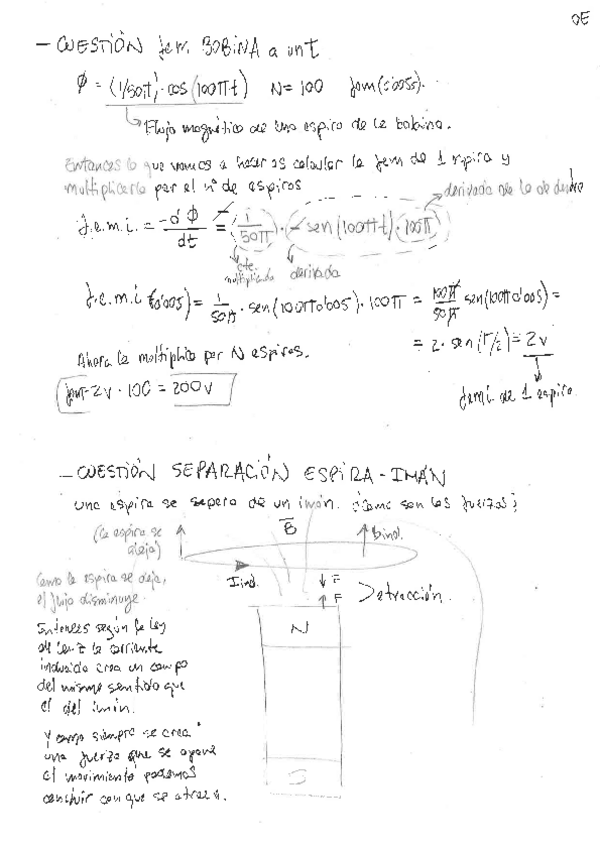 OE
- CUESTIÓN fem. BOBINA a un t
Φ = (1/50π)·cos(100πt) N=100 fem(0'005).
Flujo magnético de una espira de la bobina.
Entonces lo que vamos a hacer es calcular la fem de 1 espira y
multiplicarla por el nº de espiras
derivada de lo de dentro
f.e.m.i. = -dΦ/dt = -(1/50π)·-sen(100πt)·100π
cte. multiplicada derivada
f.e.m.i (0'005) = 1/50π · sen(100π0'005)·100π = 100π/50π sen(100π0'005) =
= 2·sen(π/2) = 2v
Ahora la multiplico por N espiras.
fem=2v·100 = 200v
femi de 1 espira
- CUESTIÓN SEPARACIÓN ESPIRA-IMÁN
una espira se separa de un imán. ¿Cómo son las fuerzas?
(la espira se aleja)
B
Bind.
Como la espira se aleja,
el flujo disminuye.
Iind.
F
F
atracción.
N
Entonces según la ley
de Lenz la corriente
inducida crea un campo
del mismo sentido que
el del imán.
Y como siempre se crea
una fuerza que se opone
al movimiento podemos
concluir con que se atraen.
S